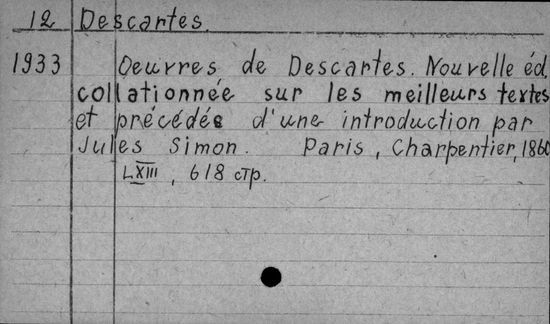 12 Descartes.
1933 Oeuvres de Descartes. Nouvelle éd.
collationnée sur les meilleurs textes
et précédée d'une introduction par
Jules Simon. Paris, Charpentier, 1860
LXIII, 618 стр.